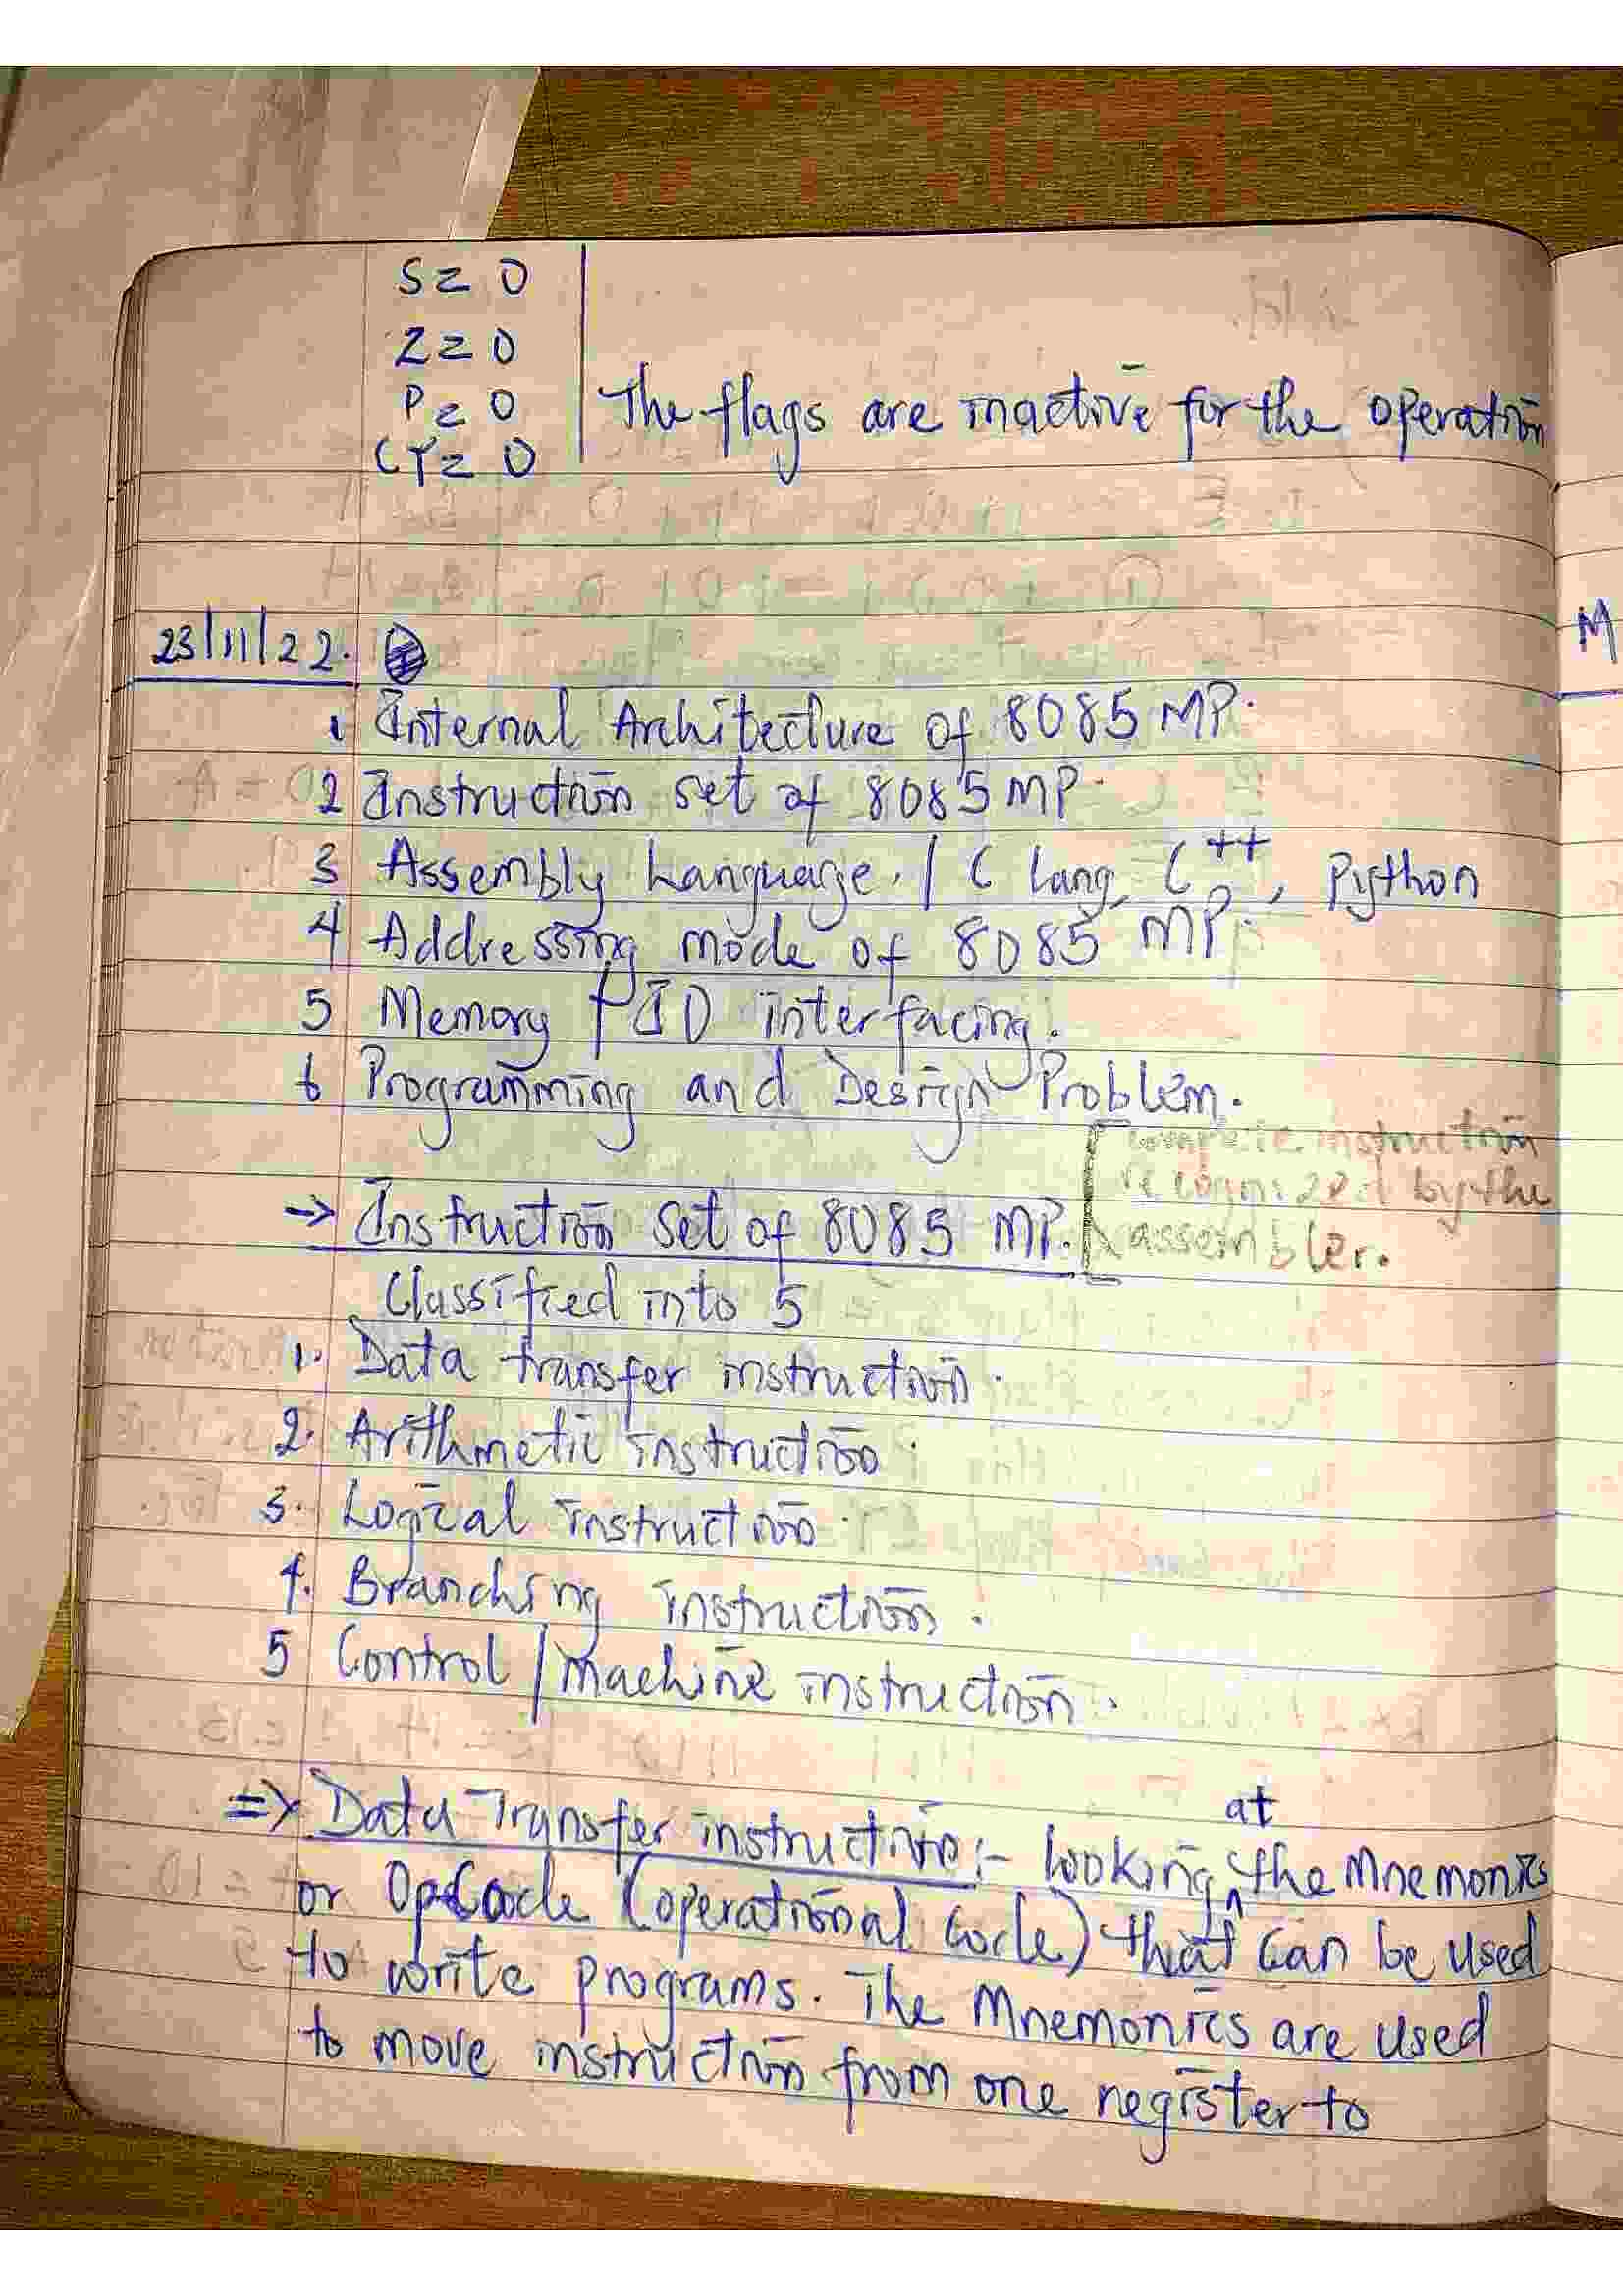 S = 0
Z = 0
P = 0 | The flags are inactive for the operation
CY = 0
23/11/22.
1 Internal Architecture of 8085 MP.
2 Instruction set of 8085 MP.
3 Assembly Language. / C lang, C++, Python
4 Addressing mode of 8085 MP.
5 Memory / I/O interfacing.
6 Programming and Design Problem.
→ Instruction set of 8085 MP. [complete instruction
recognized by the
assembler.
Classified into 5
1. Data transfer instruction.
2. Arithmetic instruction.
3. Logical instruction.
4. Branching instruction.
5 Control / Machine instruction.
=> Data Transfer instruction:- looking at the Mnemonics
or OpCode (operational Code) that can be used
to write programs. The Mnemonics are used
to move instruction from one register to
M